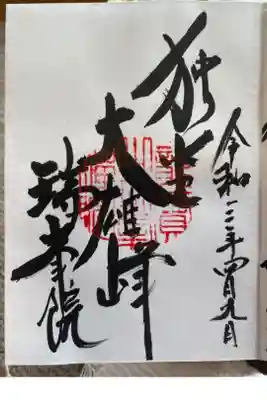 令和三年四月九日
独坐
大雄峰
瑞峯院